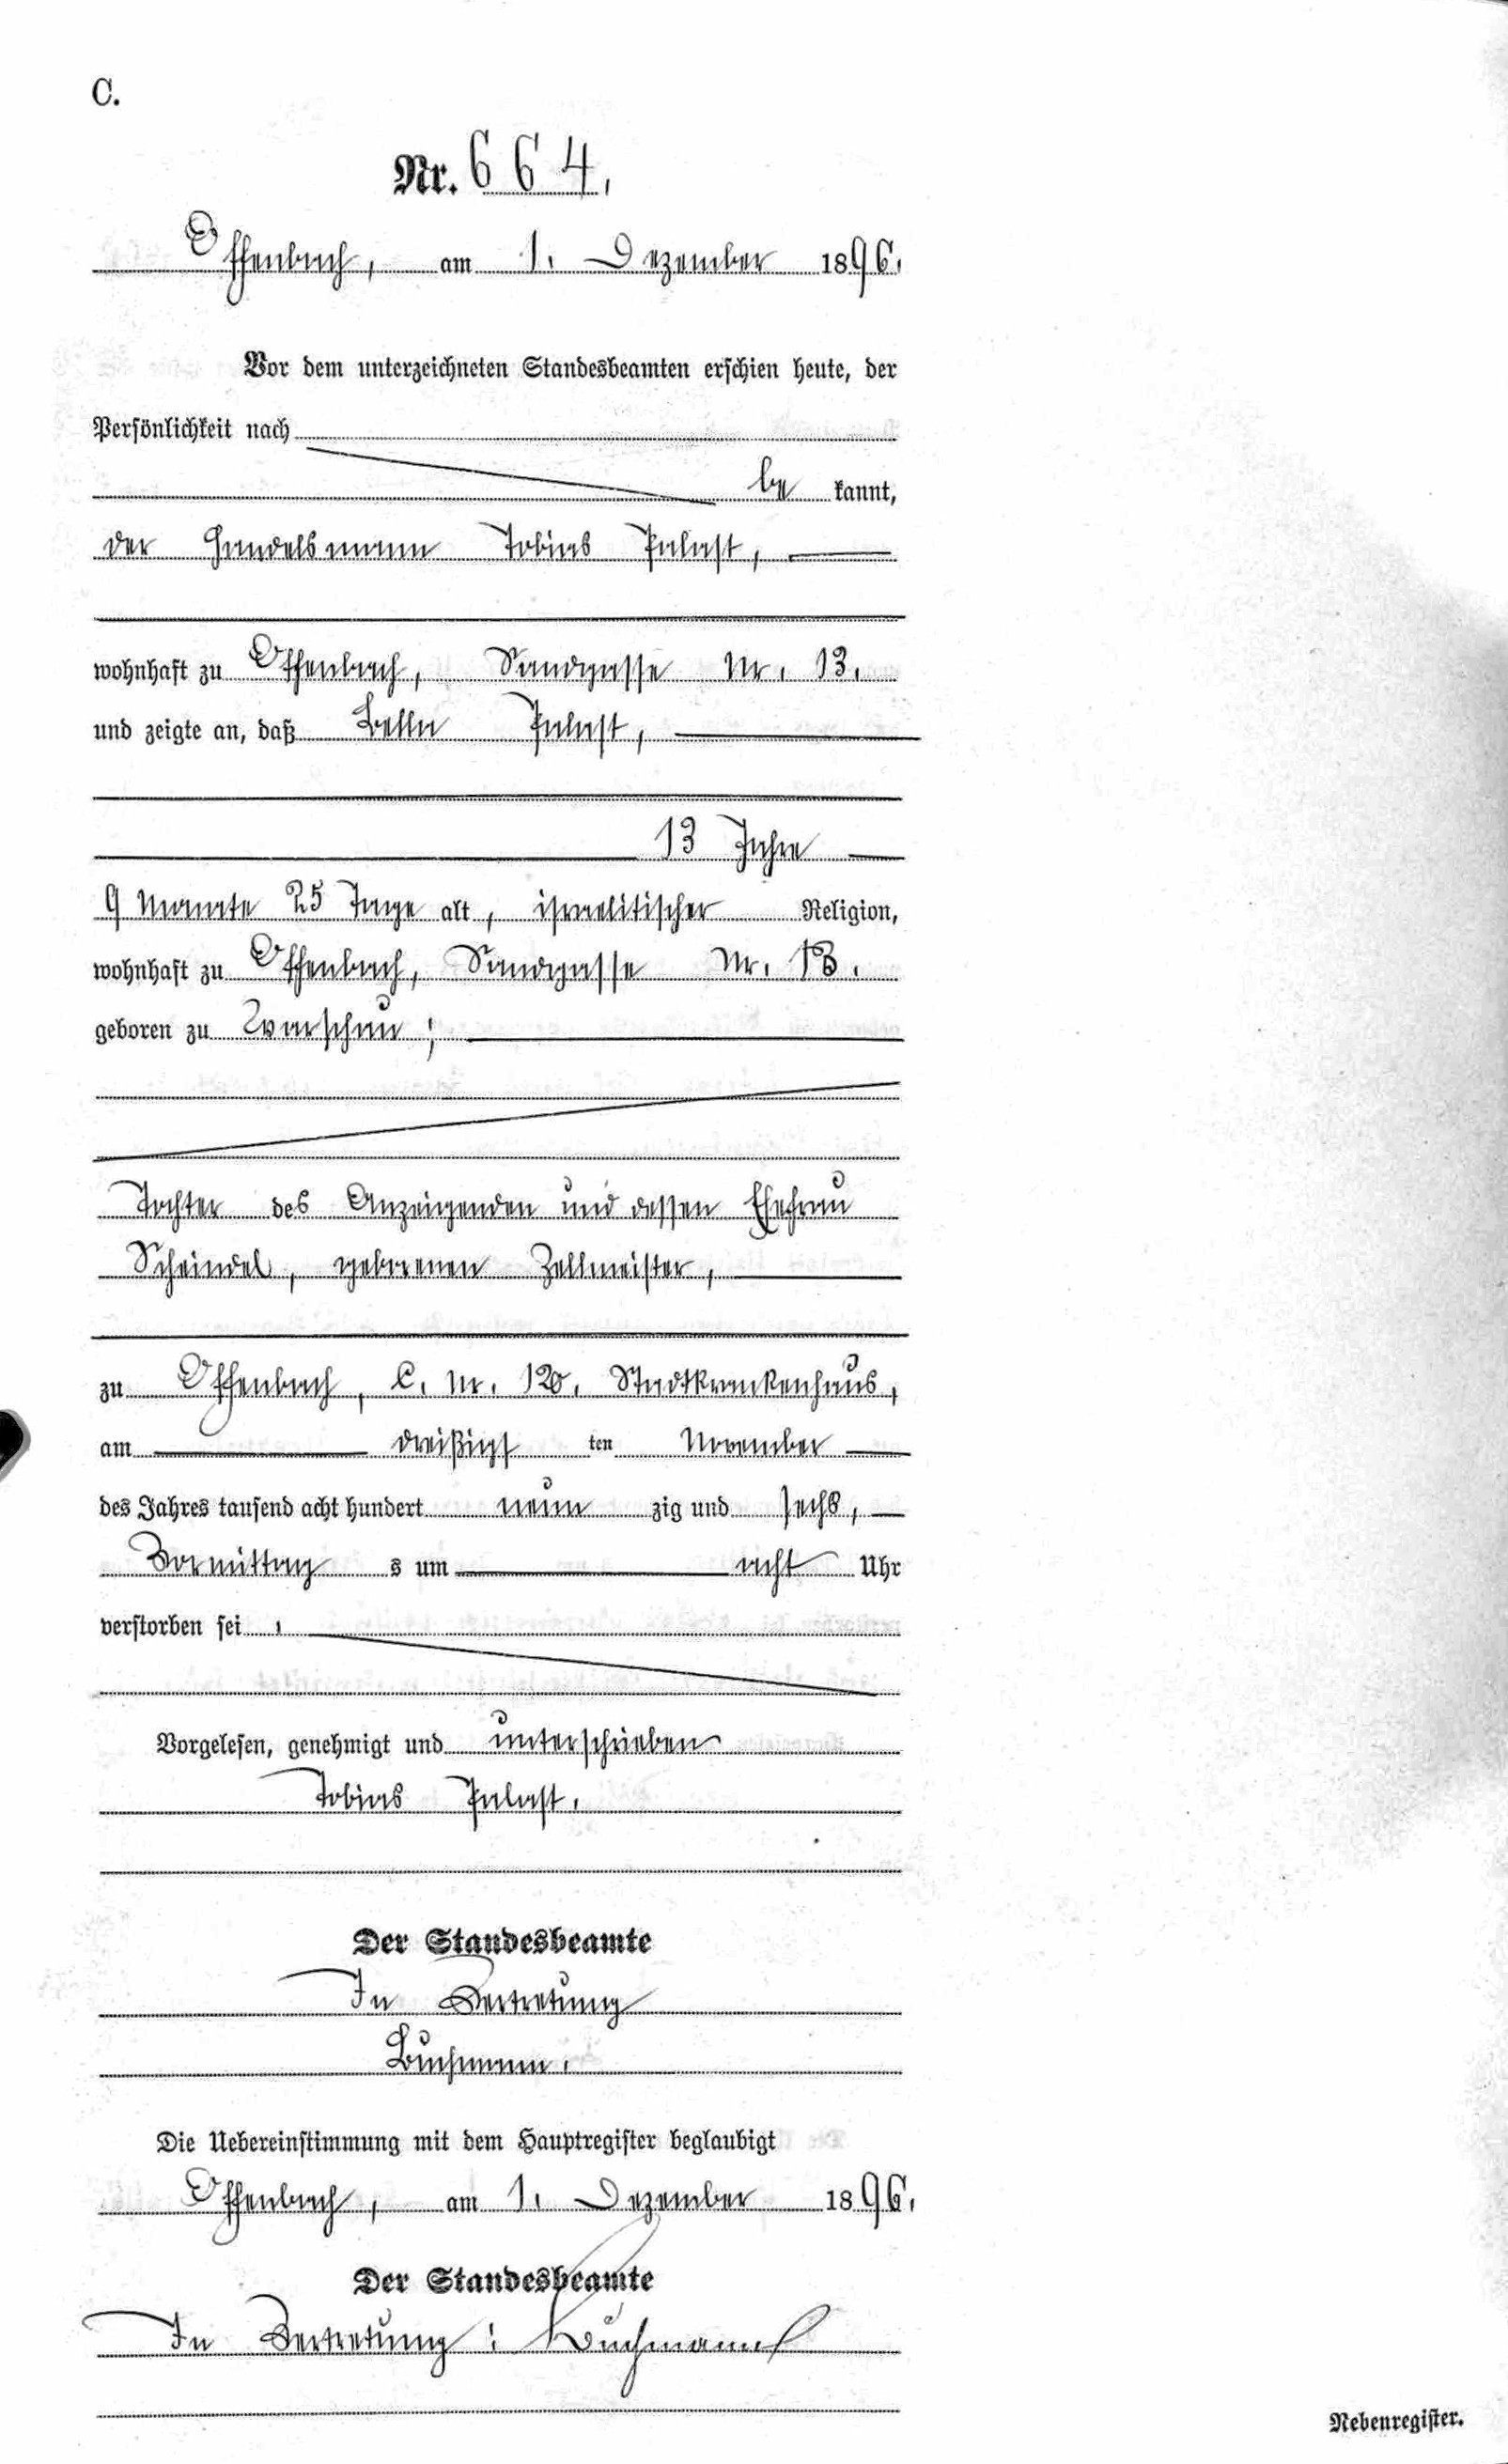 C.
Nr. 664.
Offenbach, am 1. Dezember 1896.
Vor dem unterzeichneten Standesbeamten erschien heute, der
Persönlichkeit nach
be kannt,
der Handelsmann Tobias Palast,
wohnhaft zu Offenbach, Sandgasse Nr. 13.
und zeigte an, daß Bella Palast,
13 Jahre
9 Monate 25 Tage alt, israelitischer Religion,
wohnhaft zu Offenbach, Sandgasse Nr. 13.
geboren zu Warschau;
Tochter des Anzeigenden und dessen Ehefrau
Scheindel, geborenen Zellmeister,
zu Offenbach, C. Nr. 120. Stadtkrankenhaus,
am dreißigst ten November
des Jahres tausend acht hundert neun zig und sechs,
Vormittag s um acht Uhr
verstorben sei.
Vorgelesen, genehmigt und unterschrieben
Tobias Palast.
Der Standesbeamte
In Vertretung
Buchmann.
Die Uebereinstimmung mit dem Hauptregister beglaubigt
Offenbach, am 1. Dezember 1896.
Der Standesbeamte
In Vertretung: Buchmann
Nebenregister.